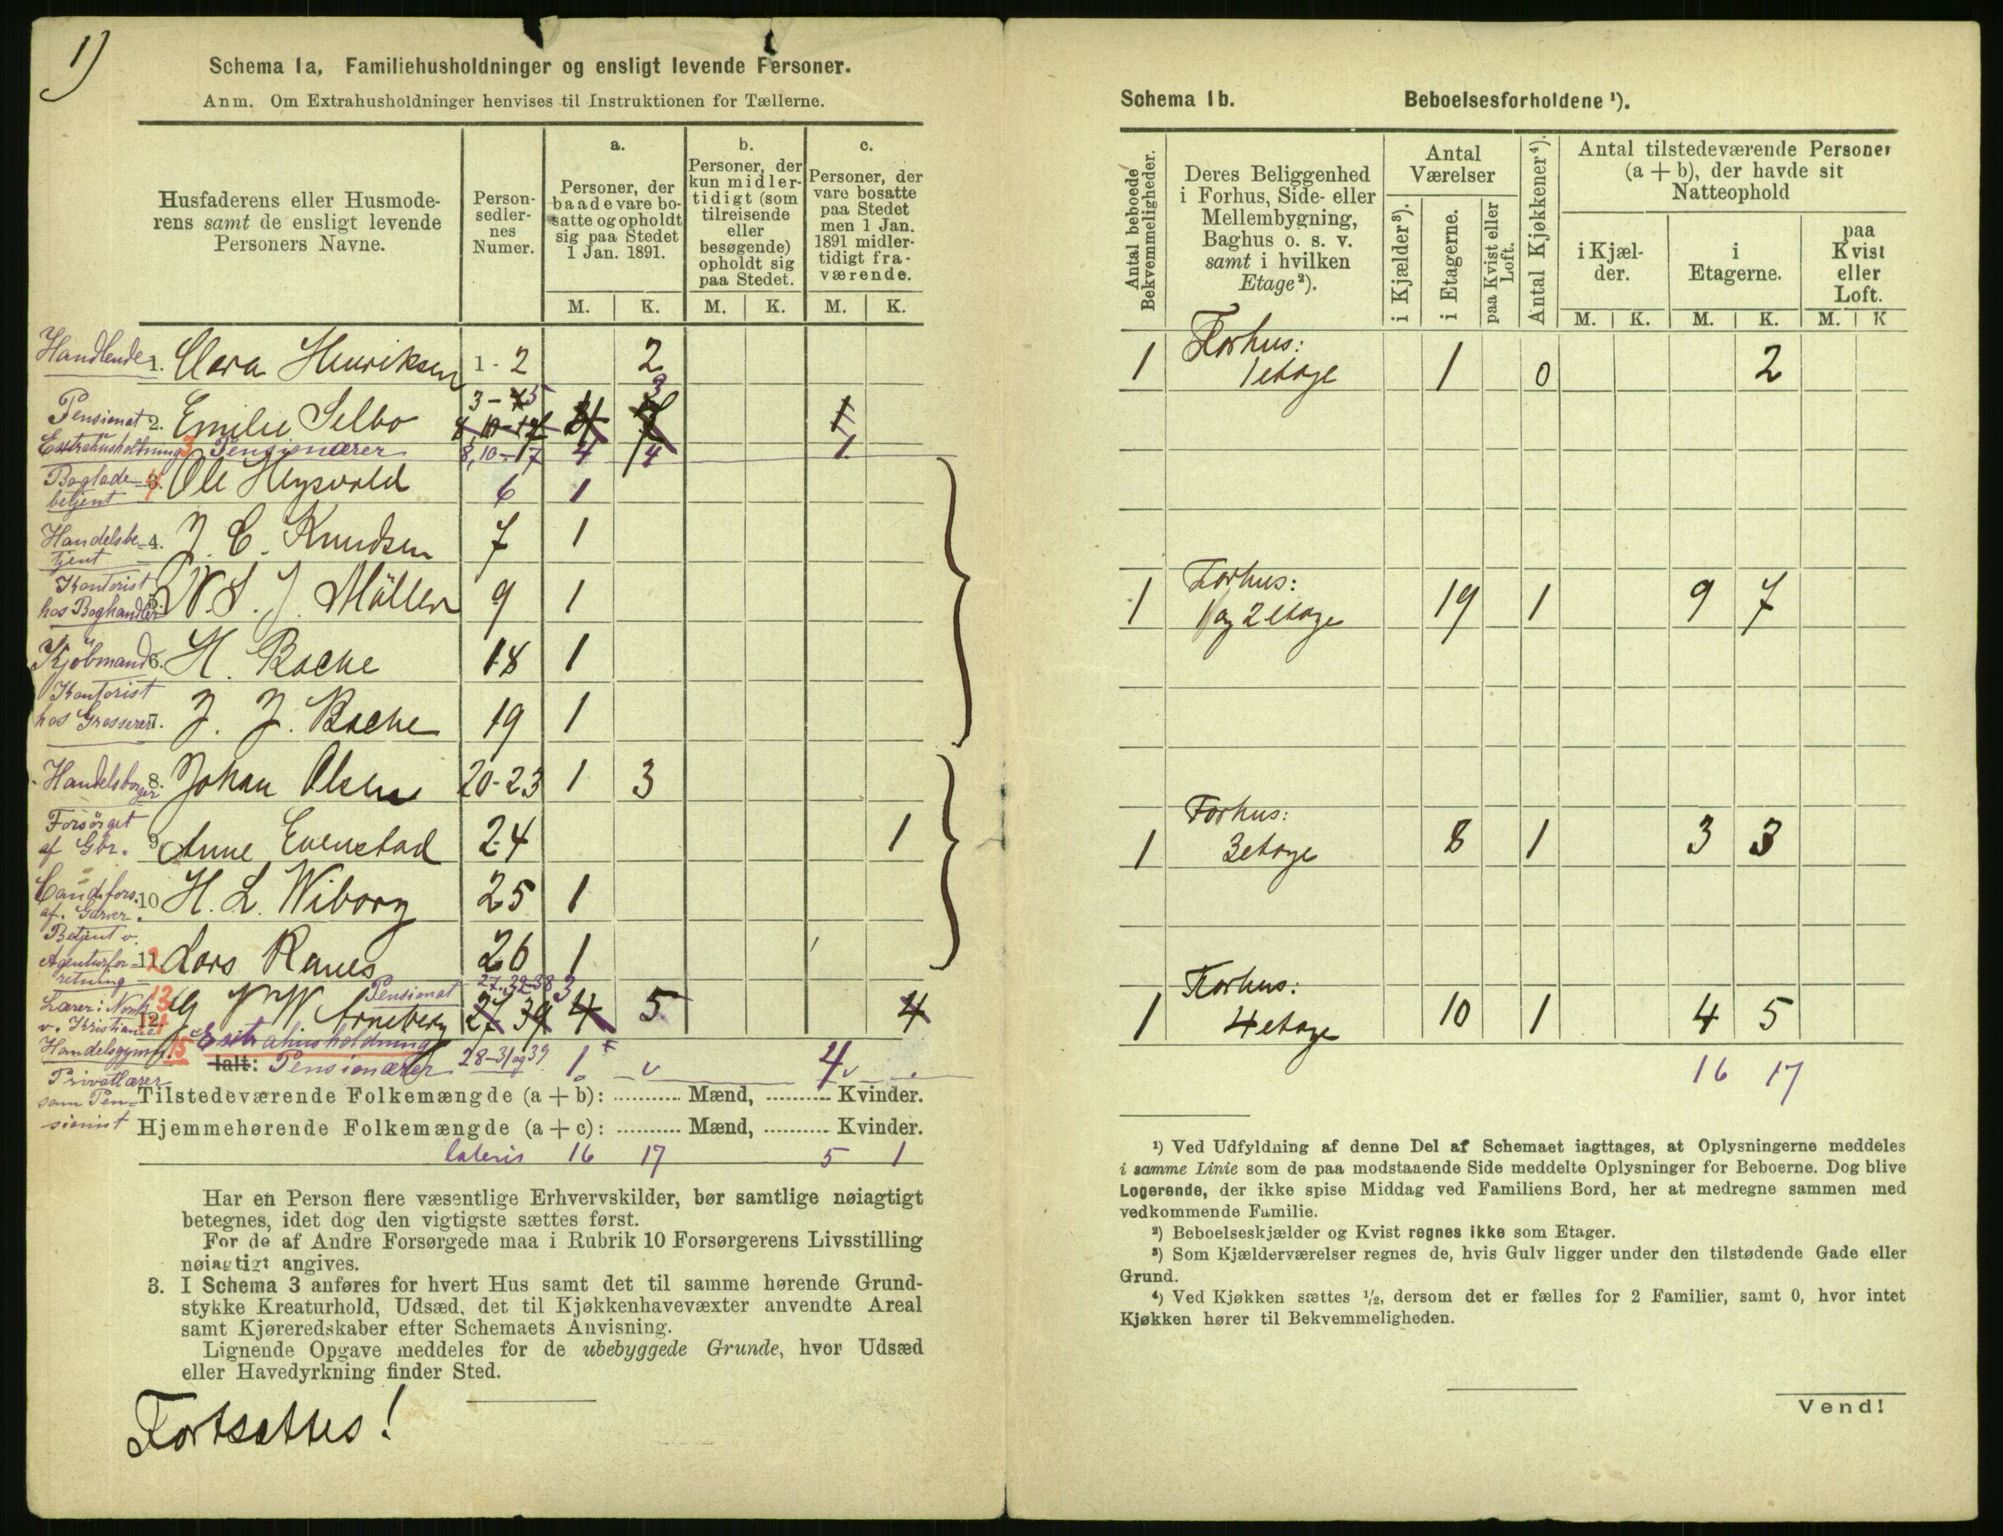 1)
Schema 1a, Familiehusholdninger og ensligt levende Personer.
Anm. Om Extrahusholdninger henvises til Instruktionen for Tællerne.
Husfaderens eller Husmode-
rens samt de ensligt levende
Personers Navne.
Person-
sedler-
nes
Numer.
a.
Personer, der
baade vare bo-
satte og opholdt
sig paa Stedet
1 Jan. 1891.
b.
Personer, der
kun midler-
tidigt (som
tilreisende
eller
besøgende)
opholdt sig
paa Stedet.
c.
Personer, der
vare bosatte
paa Stedet
men 1 Jan.
1891 midler-
tidigt fra-
værende.
M. K. M. K. M. K.
Handlende 1. Clara Henriksen 1-2 2
3-5 3
Pensionat 2. Emilie Selbo 8, 10-17 1
Extrahusholdning 3 Pensionærer 8, 10-17 4 4 1
Boglade- 3. Ole Hegsvold 6 1
betjent
Handelsbe- 4. J. C. Knudsen 7 1
tjent
Kontorist
hos Boghandler 5. W. S. J. Möller 9 1
Kjöbmand 6. H. Bache 18 1
Kontorist
hos Grosserer 7. J. J. Bache 19 1
Handelsborger 8. Johan Olsen 20-23 1 3
Forsörget
af Gbr. 9. Anne Evenstad 24 1
Cand. fors.
af Garver. 10. H. L. Wiborg 25 1
Betjent v.
Agenturfor- 11. Lars Ranes 26 1
retning
Pensionat 27, 32-38 3
Lærer i Norsk 13
v. Kristiania 12. Arneberg 27 39 4 5 4
Handelsgymn. 15 Extrahusholdning
Ialt: Pensionærer 28-31 og 39 1 4
Privatlærer
som Pen-
sionist
Tilstedeværende Folkemængde (a + b): ........... Mænd, ........... Kvinder.
Hjemmehørende Folkemængde (a + c): ........... Mænd, ........... Kvinder.
lateris 16 17 5 1
Har en Person flere væsentlige Erhvervskilder, bør samtlige nøiagtigt
betegnes, idet dog den vigtigste sættes først.
For de af Andre Forsørgede maa i Rubrik 10 Forsørgerens Livsstilling
nøiagtigt angives.
3. I Schema 3 anføres for hvert Hus samt det til samme hørende Grund-
stykke Kreaturhold, Udsæd, det til Kjøkkenhavevæxter anvendte Areal
samt Kjøreredskaber efter Schemaets Anvisning.
Lignende Opgave meddeles for de ubebyggede Grunde, hvor Udsæd
eller Havedyrkning finder Sted.
Fortsættes!
Schema 1b. Beboelsesforholdene ¹).
Antal beboede
Bekvemmeligheder.
Deres Beliggenhed
i Forhus, Side- eller
Mellembygning,
Baghus o. s. v.
samt i hvilken
Etage²).
Antal
Værelser
i Kjælder³).
i Etagerne.
paa Kvist eller
Loft.
Antal Kjøkkener⁴).
Antal tilstedeværende Personer
(a + b), der havde sit
Natteophold
i Kjæl-
der.
i
Etagerne.
paa
Kvist
eller
Loft.
M. K. M. K. M. K
1 Forhus:
1 etage 1 0 2
1 Forhus:
1 og 2 etage 19 1 9 7
1 Forhus:
3 etage 8 1 3 3
1 Forhus:
4 etage 10 1 4 5
16 17
¹) Ved Udfyldning af denne Del af Schemaet iagttages, at Oplysningerne meddeles
i samme Linie som de paa modstaaende Side meddelte Oplysninger for Beboerne. Dog blive
Logerende, der ikke spise Middag ved Familiens Bord, her at medregne sammen med
vedkommende Familie.
²) Beboelseskjælder og Kvist regnes ikke som Etager.
³) Som Kjælderværelser regnes de, hvis Gulv ligger under den tilstødende Gade eller
Grund.
⁴) Ved Kjøkken sættes ½, dersom det er fælles for 2 Familier, samt 0, hvor intet
Kjøkken hører til Bekvemmeligheden.
Vend!